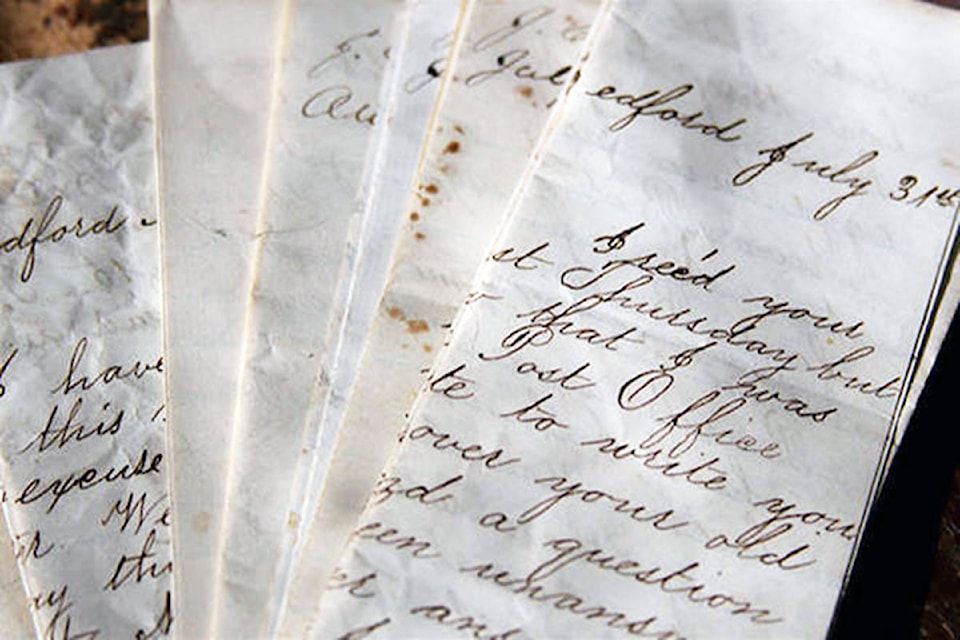 dford
have
this
excuse
We
J.
Au
J.
Jul
edford July 31st
I rec'd your
st Thursday but
that I was
Post Office
te to write you
over your old
nd a question
een unans
er ans